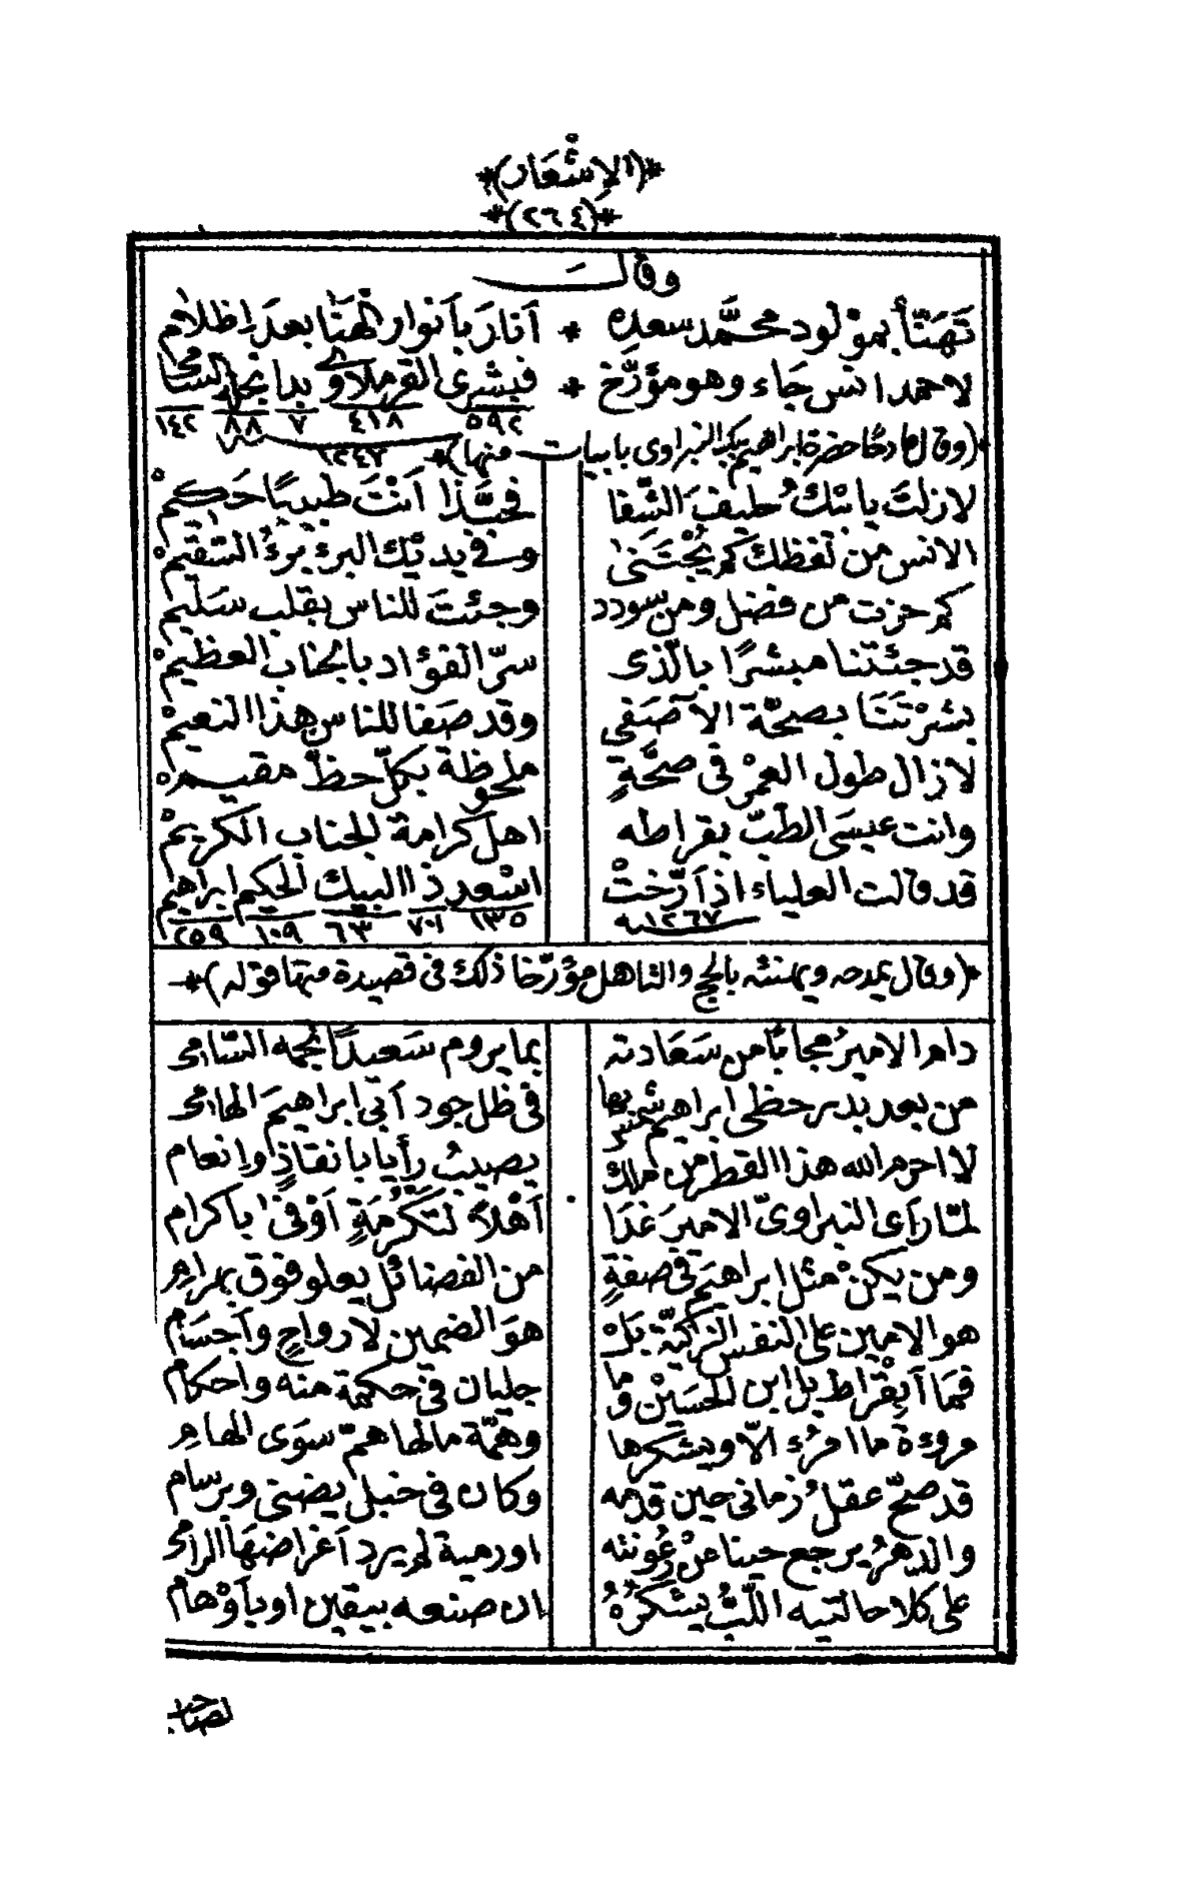 *(الاشْعَار)*
*(٢٦٤)*
وقالَ
تَهَنّأ بموْلود محمَّد سعدِه * اَنارَ بأَنوار الهَنَا بعدَ اِظلام
لاحمد انس جَاء وهو مؤَرَّخ * فبشرى القرملاوى بدا نجله السامى
٥٩٢ ٤١٨ ٧ ٨٨ ١٤٢
*(وقال مادحًا حضرة ابراهيم بيك النبراوى بابيات منها)*
١٢٤٧
لازلتَ يا بنكُ حليفَ الشّفا فحبَّذا اَنْتَ طبيبًا حَكيمْ
الانس من لفظك كم يُجْتَنىٰ وفي يديْك البرء يبرءُ السّقيمْ
كم حزت من فضل ومن سودد وجئتَ للناس بقلب سَليمْ
قد جئتنا مبشرًا بالّذى سرّ الفؤاد بالجناب العظيمْ
بشرْتَنَا بصحّة الآصَفى وقد صَفا للناس هذا النعيمْ
لازال طول العمْر فى صحَّةٍ ملحوظة بكلّ حظّ مقيمْ
وانت عيسَى الطبّ بقراطه اهل كرامة الجناب الكريمْ
قد قالت العلياء اذ اَرَّختْ اسْعد ذا البيك الحكيم ابراهيم
١٢٦٧ ١٣٥ ٧٠١ ٦٣ ١٠٩ ٢٥٩
*(وقال يمدحه ويهنئه بالحج والتاهل مؤرّخا ذلك فى قصيدة منها قوله)*
دام الاميرُ مجابًا من سَعَادته بما يروم سَعيدًا نجمه السّامى
من بعد بدر حظى ابراهيم شمس بها فى ظل جود اَبى ابراهيمَ الهامى
لا احرم الله هذا القطر من ملك يصيبُ رأيا بانقاذٍ واِنعام
لمّا رَأى النبراوىّ الاميرَ غدَا اَهْلاً لتكرُمَةٍ اَوْفىٰ باكرام
ومن يكنْ مثل ابراهيَم فى صفةٍ من الفضائل يعلو فوق بهرامِ
هو الامين على النفس الزكيّة بَلْ هوَ الضمين لارواحٍ واَجسَام
فمَا اَبِقْراط بل ابن الحسَيْن وَما جليان فى حكمة منه واحكام
مروءة ما امرُء الّا ويشكرها وهمّة مالها همّ سوَى الهامِ
قد صحّ عقلُ زمانى حين قدمه وكان فى خبل يضنى وبرسام
والدهرُ يرجع حينا منْ رُعُونته او رمية لم يرد اَغراضهَا الرامى
على كلا حالتيه اللّبُّ يشكُرُهُ ان صنعه بيقين او باَوْهام
لصاحب